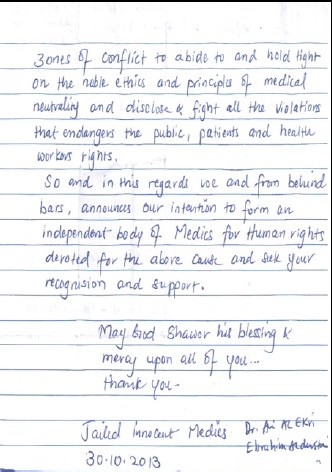 Zones of conflict to abide to and hold tight
on the noble ethics and principles of medical
neutrality and disclose & fight all the violations
that endangers the public, patients and health
workers rights.
So and in this regards we and from behind
bars, announces our intention to form an
independent body of Medics for Human rights
devoted for the above cause and seek your
recognusion and support.
May God Shawer his blessing &
mercy upon all of you...
thank you-
Jailed innocent Medics Dr. Ali AL EKri
Ebrahim
30.10.2013